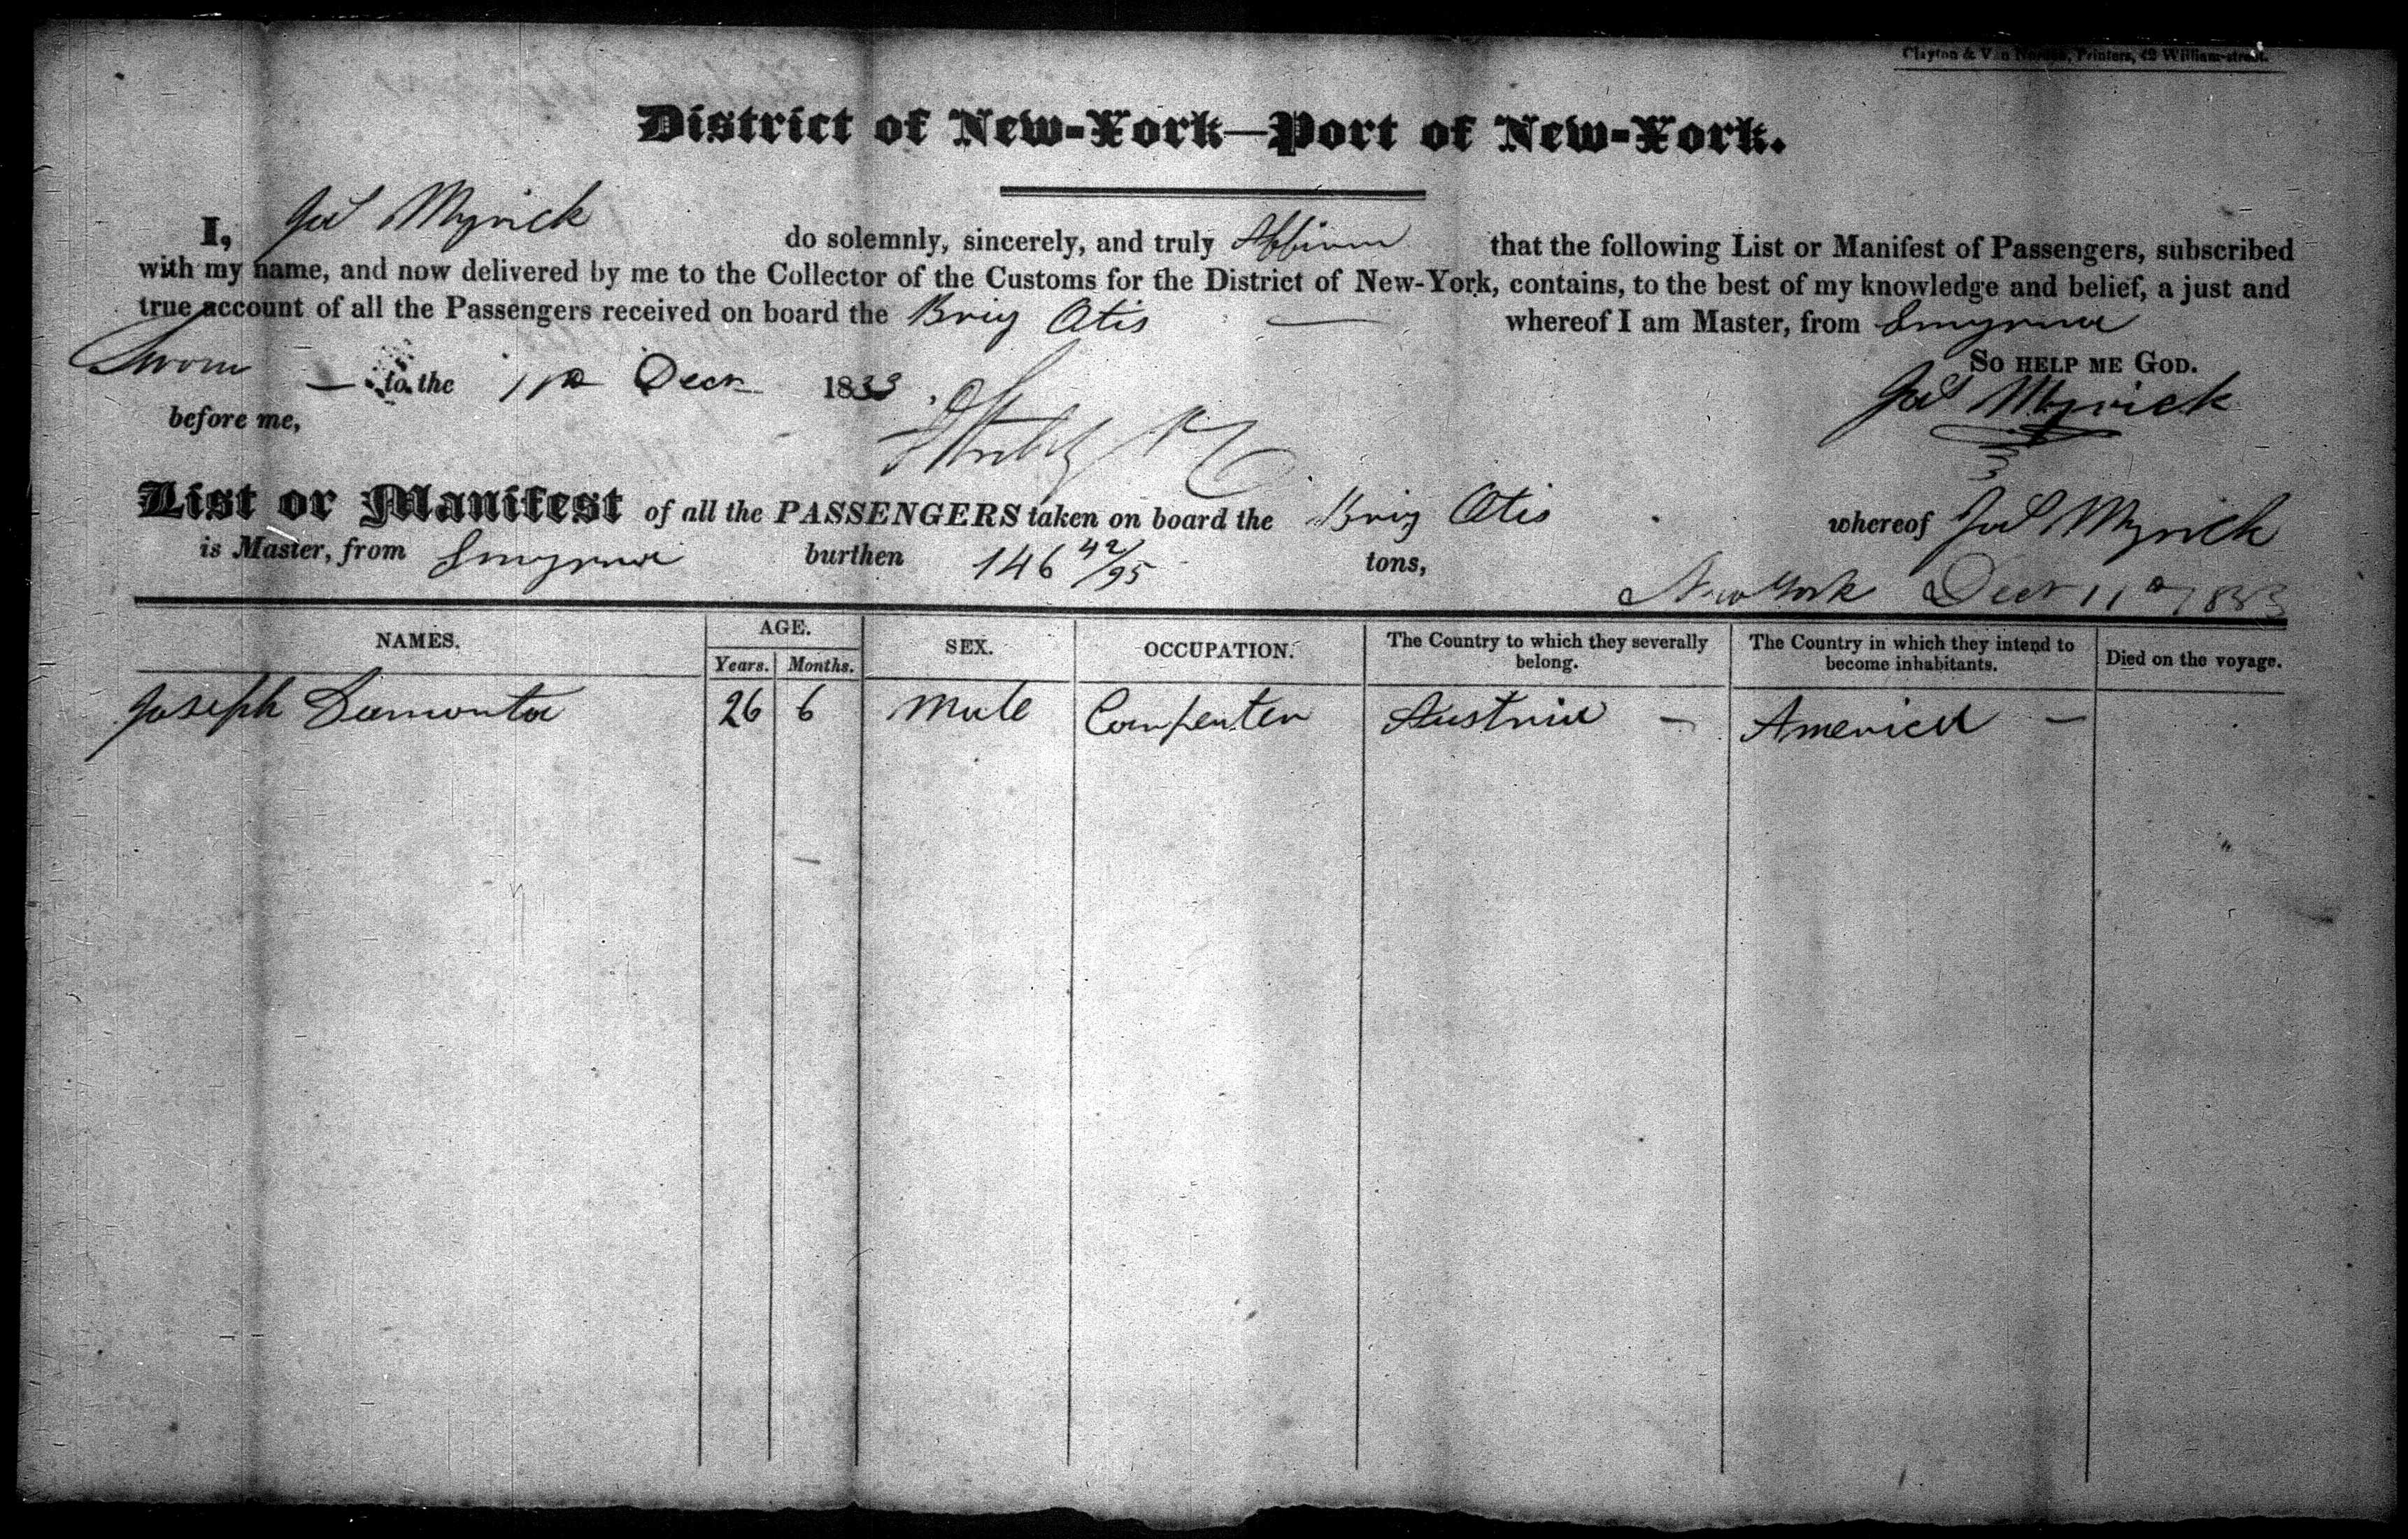 Clayton & Van Norden, Printers, 42 William-street.
District of New-York—Port of New-York.
I, Jas Myrick do solemnly, sincerely, and truly Affirm that the following List or Manifest of Passengers, subscribed
with my name, and now delivered by me to the Collector of the Customs for the District of New-York, contains, to the best of my knowledge and belief, a just and
true account of all the Passengers received on board the Brig Otis — whereof I am Master, from Smyrna
So help me God.
Sworn — to the 11th Decr 1833
Jas Myrick
before me,
List or Manifest of all the PASSENGERS taken on board the Brig Otis whereof Jas Myrick
is Master, from Smyrna burthen 146 42/95 tons,
New York Decr 11th 1833
NAMES. AGE. SEX. OCCUPATION. The Country to which they severally belong. The Country in which they intend to become inhabitants. Died on the voyage.
Years. Months.
Joseph Damonta 26 6 Male Carpenter Austria — America —